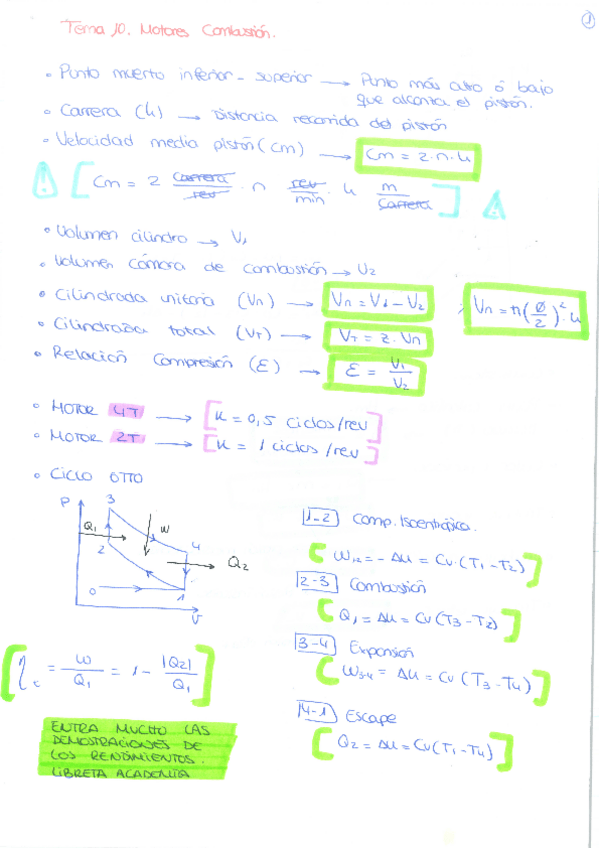 1
Tema 10. Motores Combustión.
• Punto muerto inferior - superior → Punto más alto ó bajo
que alcanza el pistón.
• Carrera (h) → Distancia recorrida del pistón
• Velocidad media pistón (cm) → Cm = 2·n·h
! [ Cm = 2 carrera/rev · n rev/min · h m/carrera ] !
• Volumen cilindro → V₁
• Volumen cámara de combustión → V₂
• Cilindrada unitaria (Vn) → Vn = V₁ - V₂ ; Vn = π(Ø/2)²·h
• Cilindrada total (VT) → VT = z·Vn
• Relación Compresión (ε) → ε = V₁/V₂
• MOTOR 4T → [k = 0,5 ciclos/rev]
• MOTOR 2T → [k = 1 ciclos/rev]
• CICLO OTTO
P
3
Q₁
W
2
4
Q₂
0
1
V
1-2 Comp. Isoentrópica.
W₁₂ = -Δu = Cv·(T₁-T₂)
2-3 Combustión
Q₁ = Δu = Cv(T₃-T₂)
3-4 Expansión
W₃₋₄ = Δu = Cv(T₃-T₄)
4-1 Escape
Q₂ = Δu = Cv(T₁-T₄)
[ηt = W/Q₁ = 1 - |Q₂|/Q₁]
ENTRA MUCHO LAS
DEMOSTRACIONES DE
LOS RENDIMIENTOS.
LIBRETA ACADEMIA